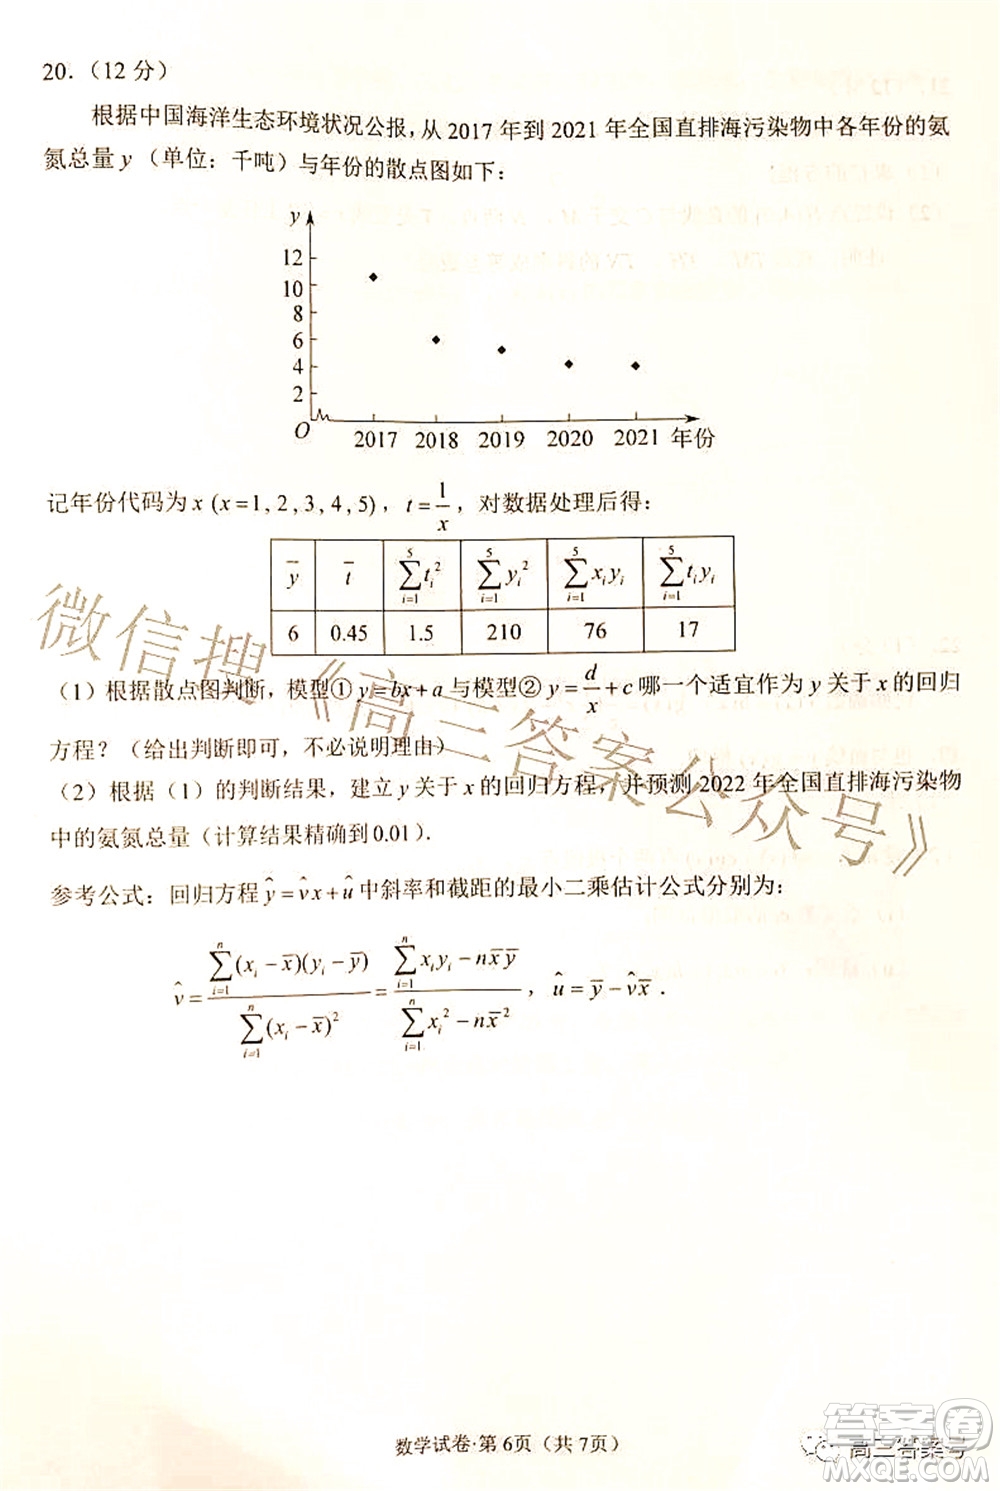 20.（12 分）
根据中国海洋生态环境状况公报，从 2017 年到 2021 年全国直排海污染物中各年份的氨
氮总量 y （单位：千吨）与年份的散点图如下：
y
12
10
8
6
4
2
O 2017 2018 2019 2020 2021 年份
记年份代码为 x (x=1, 2, 3, 4, 5) ，t=1/x ，对数据处理后得：
y̅ t̅ ∑_{i=1}^{5} t_i² ∑_{i=1}^{5} y_i² ∑_{i=1}^{5} x_i y_i ∑_{i=1}^{5} t_i y_i
6 0.45 1.5 210 76 17
（1）根据散点图判断，模型① y=bx+a 与模型② y=d/x+c 哪一个适宜作为 y 关于 x 的回归
方程？（给出判断即可，不必说明理由）
（2）根据（1）的判断结果，建立 y 关于 x 的回归方程，并预测 2022 年全国直排海污染物
中的氨氮总量（计算结果精确到 0.01）.
参考公式：回归方程 ŷ=v̂x+û 中斜率和截距的最小二乘估计公式分别为：
v̂=∑_{i=1}^{n}(x_i−x̅)(y_i−y̅)/∑_{i=1}^{n}(x_i−x̅)²=(∑_{i=1}^{n}x_i y_i−nx̅ y̅)/(∑_{i=1}^{n}x_i²−nx̅²)，û=y̅−v̂x̅ .
微信搜《高三答案公众号》
数学试卷·第 6页（共 7页）
高三答案号
答案圈
MXQE.COM